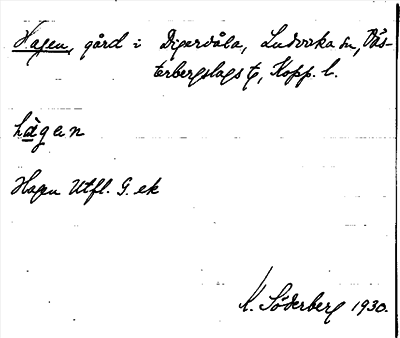 Hagen, gård i Digervåla, Ludvika sn, Väs-
terbergslags tg, Kopp. l.
hàgan
Hagen Utfl. G. ek
K. Söderberg 1930.